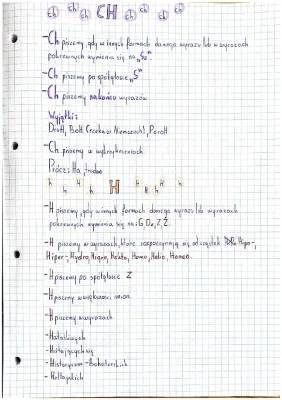 ch ch ch CH ch ch ch
-Ch piszemy, gdy w innych formach danego wyrazu lub w wyrazach
pokrewnych wymienia się na „Sz"
-Ch piszemy po spółgłosce „S"
-Ch piszemy na końcu wyrazów
Wyjątki:
Druh, Boh
-Ch piszemy w
Prócz: Ha
h h H h H h h h
-H piszemy, gdy w innych formach danego wyrazu lub wyrazach
pokrewnych wymienia się na: G, Dz, Z, Ż.
-H piszemy w wyrazach, które rozpoczynają się od cząstek Hipo-,
Hiper-, Hydro, Higro, Hekto, Hemo, Helio, Homeo.
-H piszemy po spółgłosce Z
-H piszemy w większości imion
-H piszemy w wyrazach
-Hałaśliwych
-Historyczno-Bohaterskich